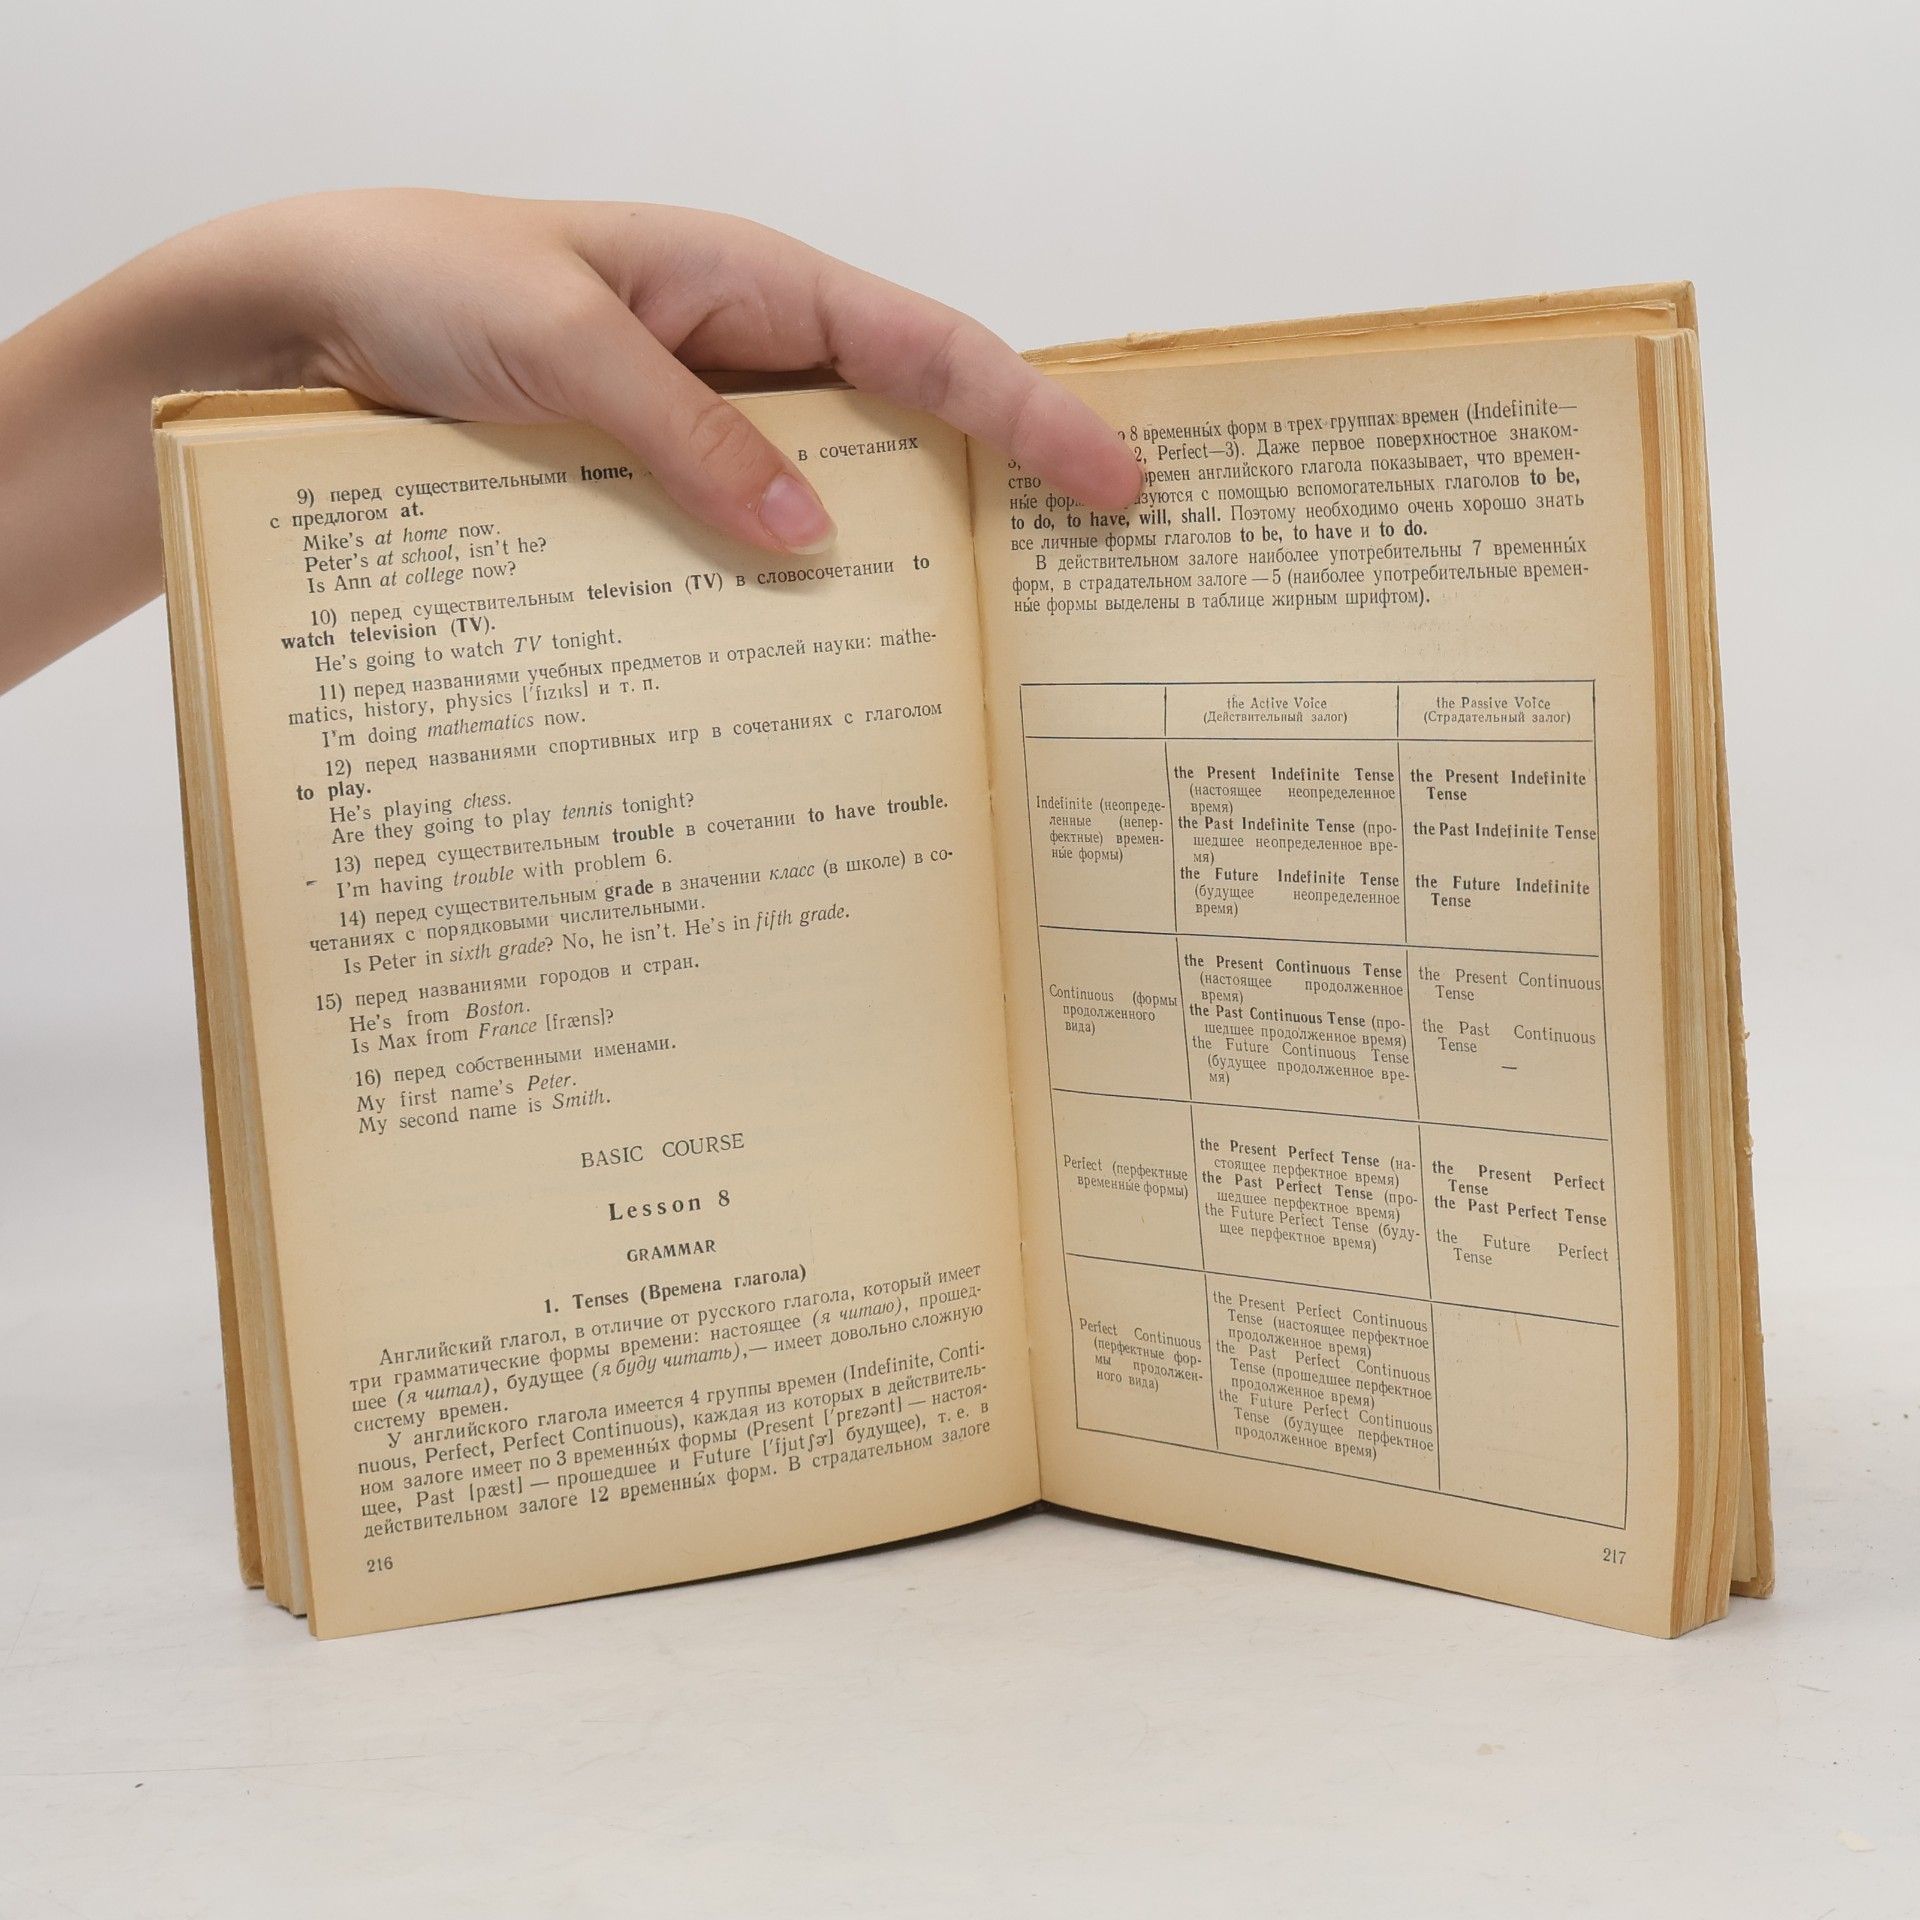 9) перед существительными home, в сочетаниях
с предлогом at.
Mike's at home now.
Peter's at school, isn't he?
Is Ann at college now?
10) перед существительным television (TV) в словосочетании to
watch television (TV).
He's going to watch TV tonight.
11) перед названиями учебных предметов и отраслей науки: mathe-
matics, history, physics ['fɪzɪks] и т. п.
I'm doing mathematics now.
12) перед названиями спортивных игр в сочетаниях с глаголом
to play.
He's playing chess.
Are they going to play tennis tonight?
13) перед существительным trouble в сочетании to have trouble.
I'm having trouble with problem 6.
14) перед существительным grade в значении класс (в школе) в со-
четаниях с порядковыми числительными.
Is Peter in sixth grade? No, he isn't. He's in fifth grade.
15) перед названиями городов и стран.
He's from Boston.
Is Max from France [fræns]?
16) перед собственными именами.
My first name's Peter.
My second name is Smith.
BASIC COURSE
Lesson 8
GRAMMAR
1. Tenses (Времена глагола)
Английский глагол, в отличие от русского глагола, который имеет
три грамматические формы времени: настоящее (я читаю), прошед-
шее (я читал), будущее (я буду читать),— имеет довольно сложную
систему времен.
У английского глагола имеется 4 группы времен (Indefinite, Conti-
nuous, Perfect, Perfect Continuous), каждая из которых в действитель-
ном залоге имеет по 3 временны́х формы (Present ['prɛzənt] — настоя-
щее, Past [pæst] — прошедшее и Future ['fjutʃɚ] будущее), т. е. в
действительном залоге 12 временны́х форм. В страдательном залоге
216
8 временны́х форм в трех группах времен (Indefinite—
3, 2, Perfect—3). Даже первое поверхностное знаком-
ство времен английского глагола показывает, что времен-
ны́е с помощью вспомогательных глаголов to be,
to do, to have, will, shall. Поэтому необходимо очень хорошо знать
все личные формы глаголов to be, to have и to do.
В действительном залоге наиболее употребительны 7 временны́х
форм, в страдательном залоге — 5 (наиболее употребительные времен-
ны́е формы выделены в таблице жирным шрифтом).
the Active Voice
(Действительный залог)
the Passive Voice
(Страдательный залог)
Indefinite (неопреде-
ленные (непер-
фектные) времен-
ны́е формы)
the Present Indefinite Tense
(настоящее неопределенное
время)
the Past Indefinite Tense (про-
шедшее неопределенное вре-
мя)
the Future Indefinite Tense
(будущее неопределенное
время)
the Present Indefinite
Tense
the Past Indefinite Tense
the Future Indefinite
Tense
Continuous (формы
продолженного
вида)
the Present Continuous Tense
(настоящее продолженное
время)
the Past Continuous Tense (про-
шедшее продолженное время)
the Future Continuous Tense
(будущее продолженное вре-
мя)
the Present Continuous
Tense
the Past Continuous
Tense
—
Perfect (перфектные
временны́е формы)
the Present Perfect Tense (на-
стоящее перфектное время)
the Past Perfect Tense (про-
шедшее перфектное время)
the Future Perfect Tense (буду-
щее перфектное время)
the Present Perfect
Tense
the Past Perfect Tense
the Future Perfect
Tense
Perfect Continuous
(перфектные фор-
мы продолжен-
ного вида)
the Present Perfect Continuous
Tense (настоящее перфектное
продолженное время)
the Past Perfect Continuous
Tense (прошедшее перфектное
продолженное время)
the Future Perfect Continuous
Tense (будущее перфектное
продолженное время)
217